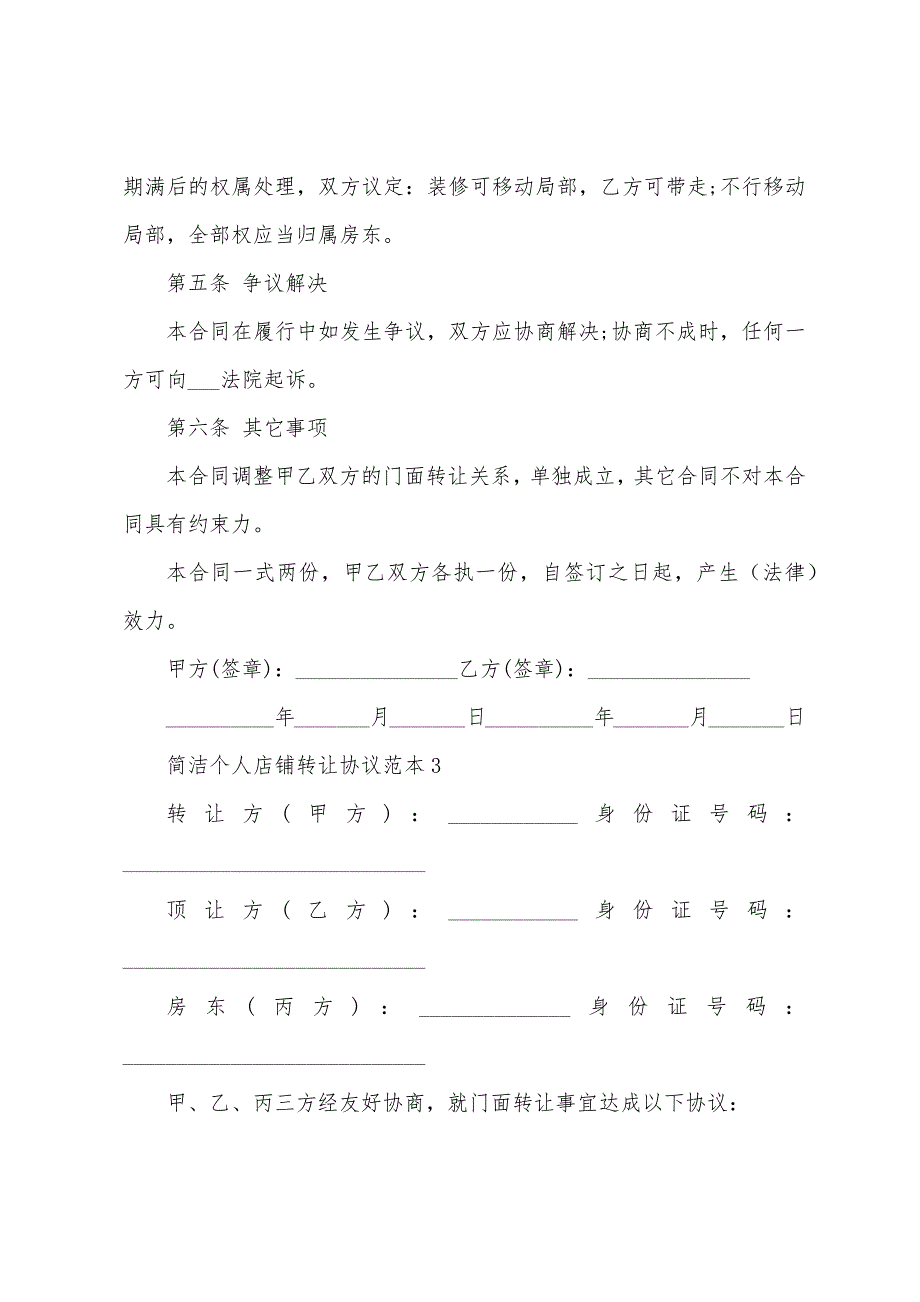 期满后的权属处理，双方议定：装修可移动局部，乙方可带走;不行移动
局部，全部权应当归属房东。
第五条 争议解决
本合同在履行中如发生争议，双方应协商解决;协商不成时，任何一
方可向___法院起诉。
第六条 其它事项
本合同调整甲乙双方的门面转让关系，单独成立，其它合同不对本合
同具有约束力。
本合同一式两份，甲乙双方各执一份，自签订之日起，产生（法律）
效力。
甲方(签章)：_______________乙方(签章)：_______________
__________年_______月_______日__________年_______月_______日
简洁个人店铺转让协议范本3
转让方(甲方)：____________身份证号码：
____________________________
顶让方(乙方)：____________身份证号码：
____________________________
房东(丙方)：______________身份证号码：
____________________________
甲、乙、丙三方经友好协商，就门面转让事宜达成以下协议：